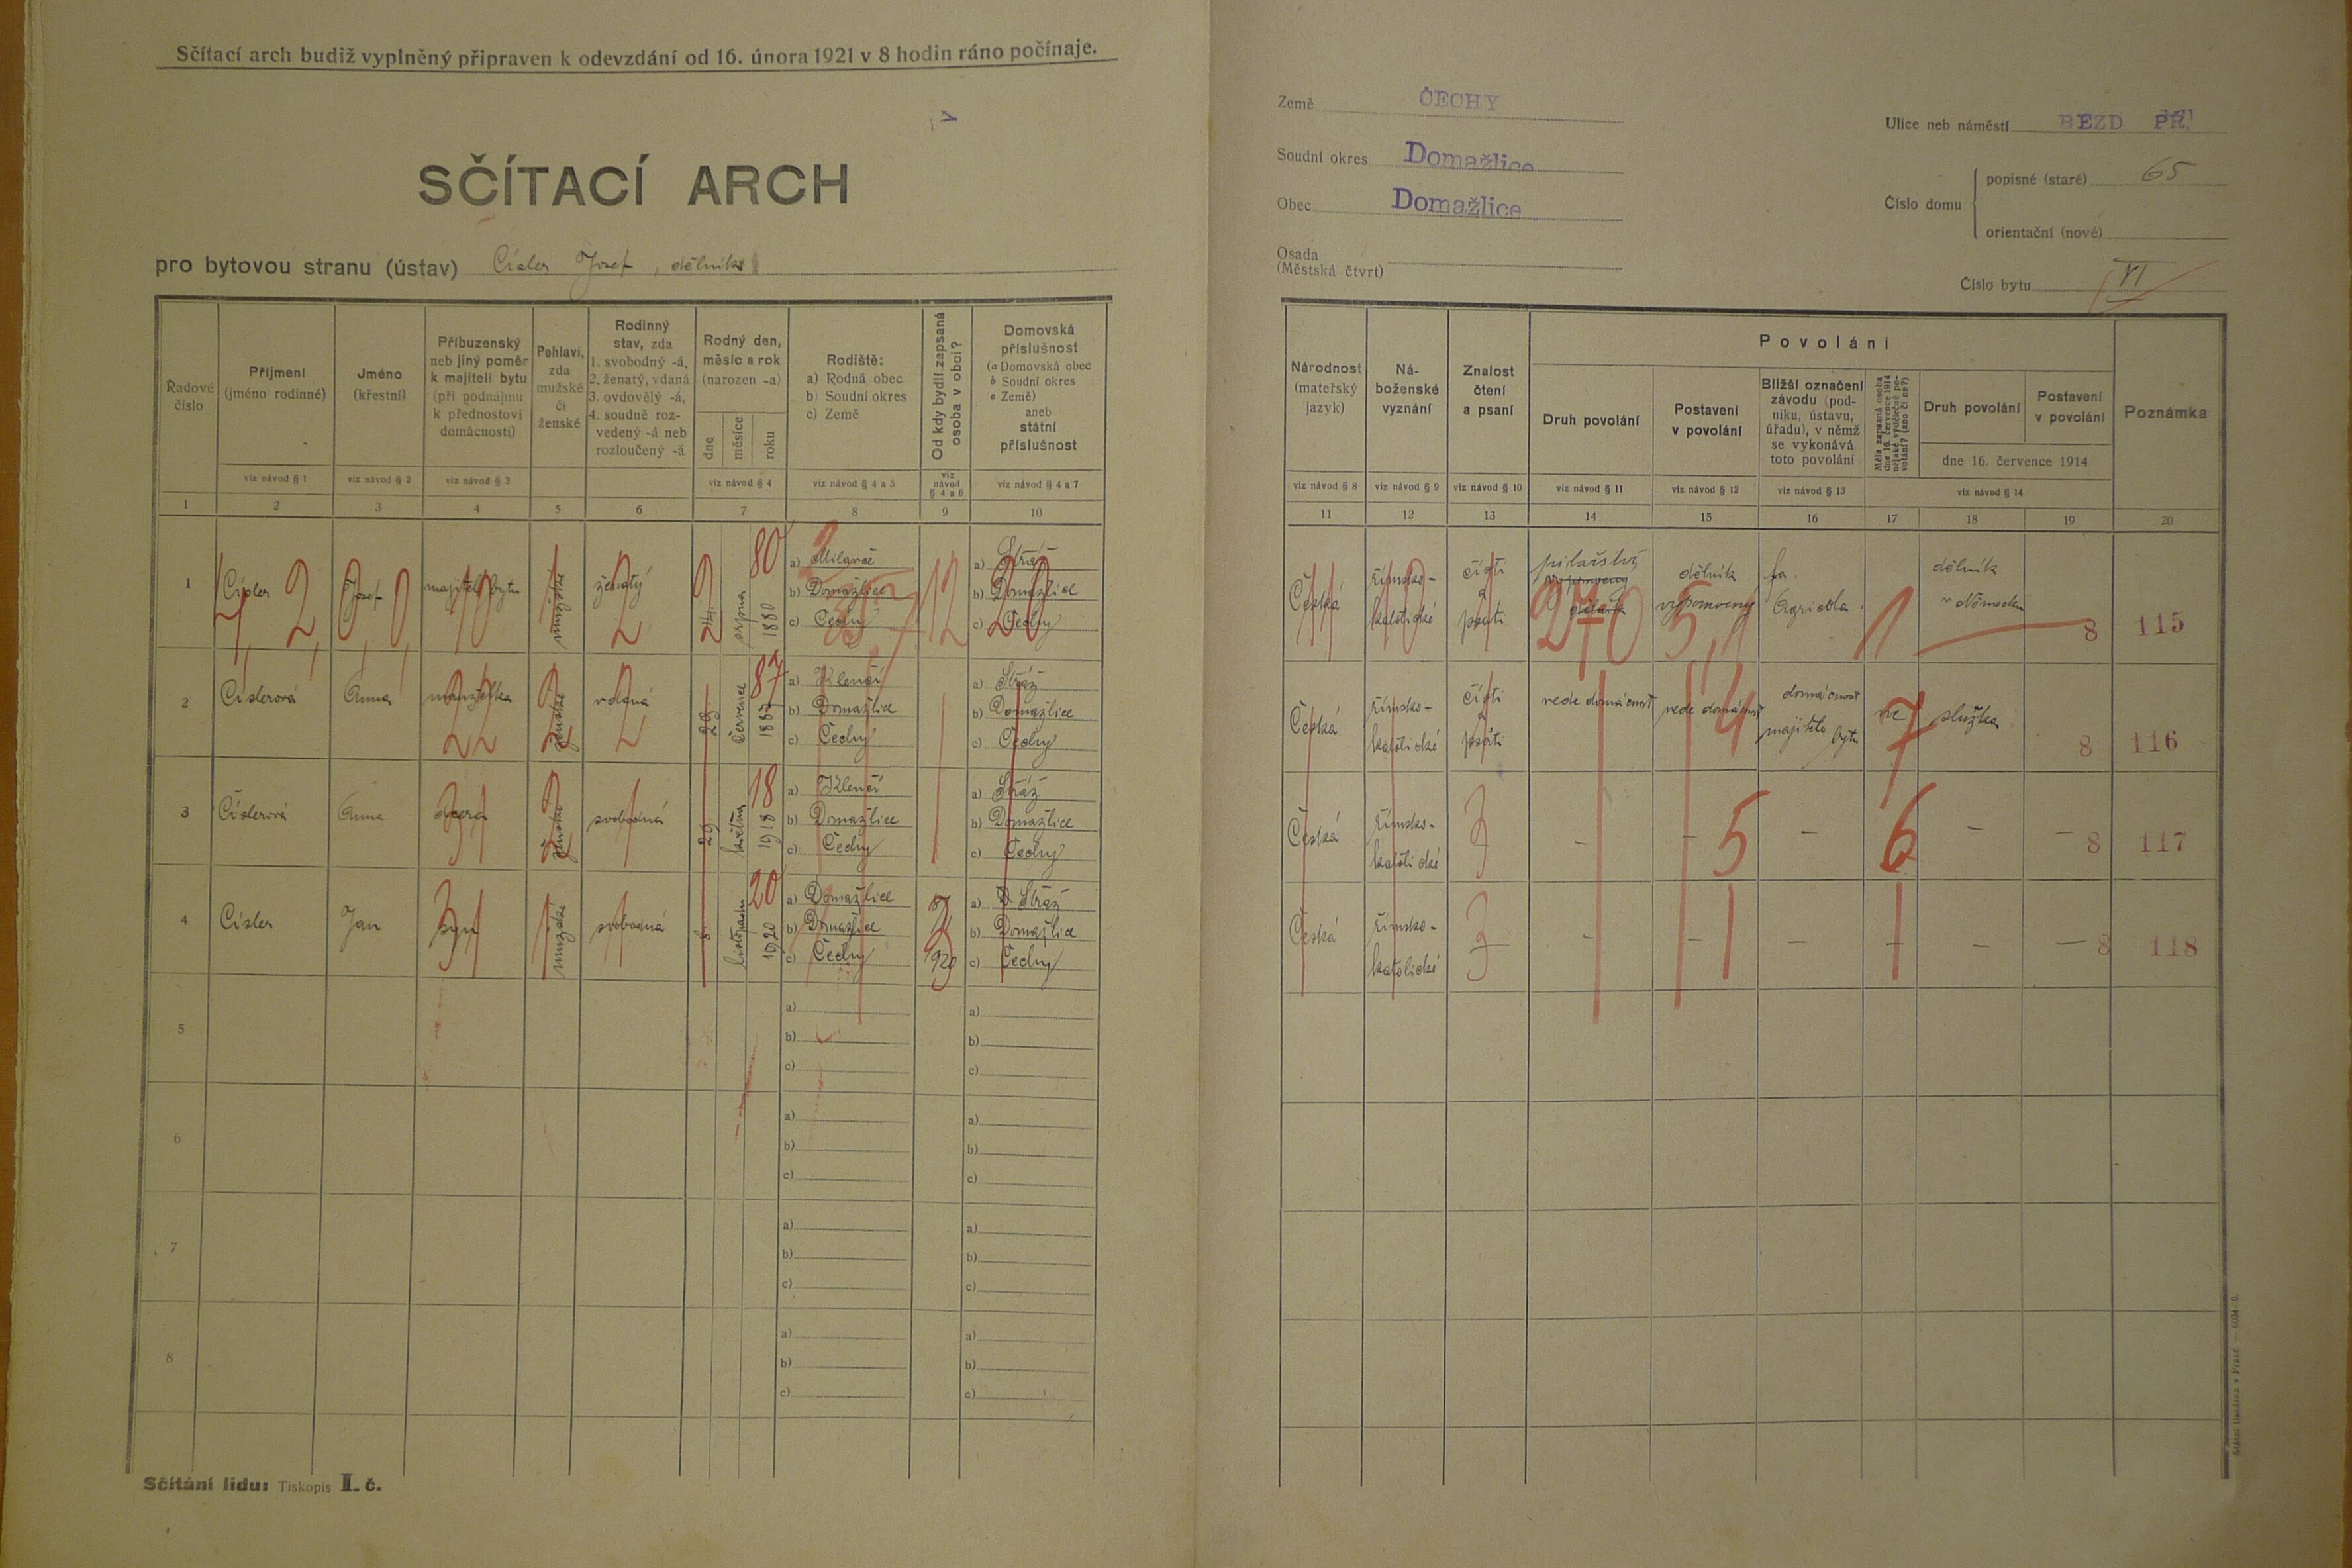 Sčítací arch budiž vyplněný připraven k odevzdání od 16. února 1921 v 8 hodin ráno počínaje.
SČÍTACÍ ARCH
pro bytovou stranu (ústav) Císler Josef, dělník
Země ČECHY
Soudní okres Domažlice
Obec Domažlice
Osada
(Městská čtvrt)
Ulice neb náměstí BEZD PŘ.
Číslo domu
popisné (staré) 65
orientační (nové)
Číslo bytu VI
Řadové číslo
Příjmení (jméno rodinné)
Jméno (křestní)
Příbuzenský neb jiný poměr k majiteli bytu (při podnájmu k přednostovi domácnosti)
Pohlaví, zda mužské či ženské
Rodinný stav, zda 1. svobodný -á, 2. ženatý, vdaná 3. ovdovělý -á, 4. soudně rozvedený -á neb rozloučený -á
Rodný den, měsíc a rok (narozen -a)
dne měsíce roku
Rodiště: a) Rodná obec b) Soudní okres c) Země
Od kdy bydlí zapsaná osoba v obci?
Domovská příslušnost (a Domovská obec b Soudní okres c Země) aneb státní příslušnost
viz návod § 1 viz návod § 2 viz návod § 3 viz návod § 4 viz návod § 4 a 5 viz návod § 4 a 6 viz návod § 4 a 7
1 2 3 4 5 6 7 8 9 10
Národnost (mateřský jazyk)
Náboženské vyznání
Znalost čtení a psaní
Povolání
Druh povolání
Postavení v povolání
Bližší označení závodu (podniku, ústavu, úřadu), v němž se vykonává toto povolání
Měla zapsaná osoba dne 16. července 1914 nějaké výdělečné povolání? (ano či ne?)
Druh povolání
Postavení v povolání
dne 16. července 1914
Poznámka
viz návod § 8 viz návod § 9 viz návod § 10 viz návod § 11 viz návod § 12 viz návod § 13 viz návod § 14
11 12 13 14 15 16 17 18 19 20
1 Císler Josef majitel bytu mužské ženatý 24. srpna 1880
a) Milavče
b) Domažlice
c) Čechy
a) Stráž
b) Domažlice
c) Čechy
Česká římsko-katolické čísti a psáti
dělník výpomocný
fa. Agricola
dělník v Německu
8 115
2 Císlerová Anna manželka ženské vdaná 29. červenec 1887
a) Klenčí
b) Domažlice
c) Čechy
a) Stráž
b) Domažlice
c) Čechy
Česká římsko-katolické čísti a psáti vede domácnost vede domácnost domácnost majitele bytu služka
8 116
3 Císlerová Anna dcera ženské svobodná 29. května 1918
a) Klenčí
b) Domažlice
c) Čechy
a) Stráž
b) Domažlice
c) Čechy
Česká římsko-katolické
8 117
4 Císler Jan syn mužské svobodná 8. listopadu 1920
a) Domažlice
b) Domažlice
c) Čechy
a) Stráž
b) Domažlice
c) Čechy
Česká římsko-katolické
8 118
5
a)
b)
c)
a)
b)
c)
6
a)
b)
c)
a)
b)
c)
7
a)
b)
c)
a)
b)
c)
8
a)
b)
c)
a)
b)
c)
Sčítání lidu: Tiskopis I. č.